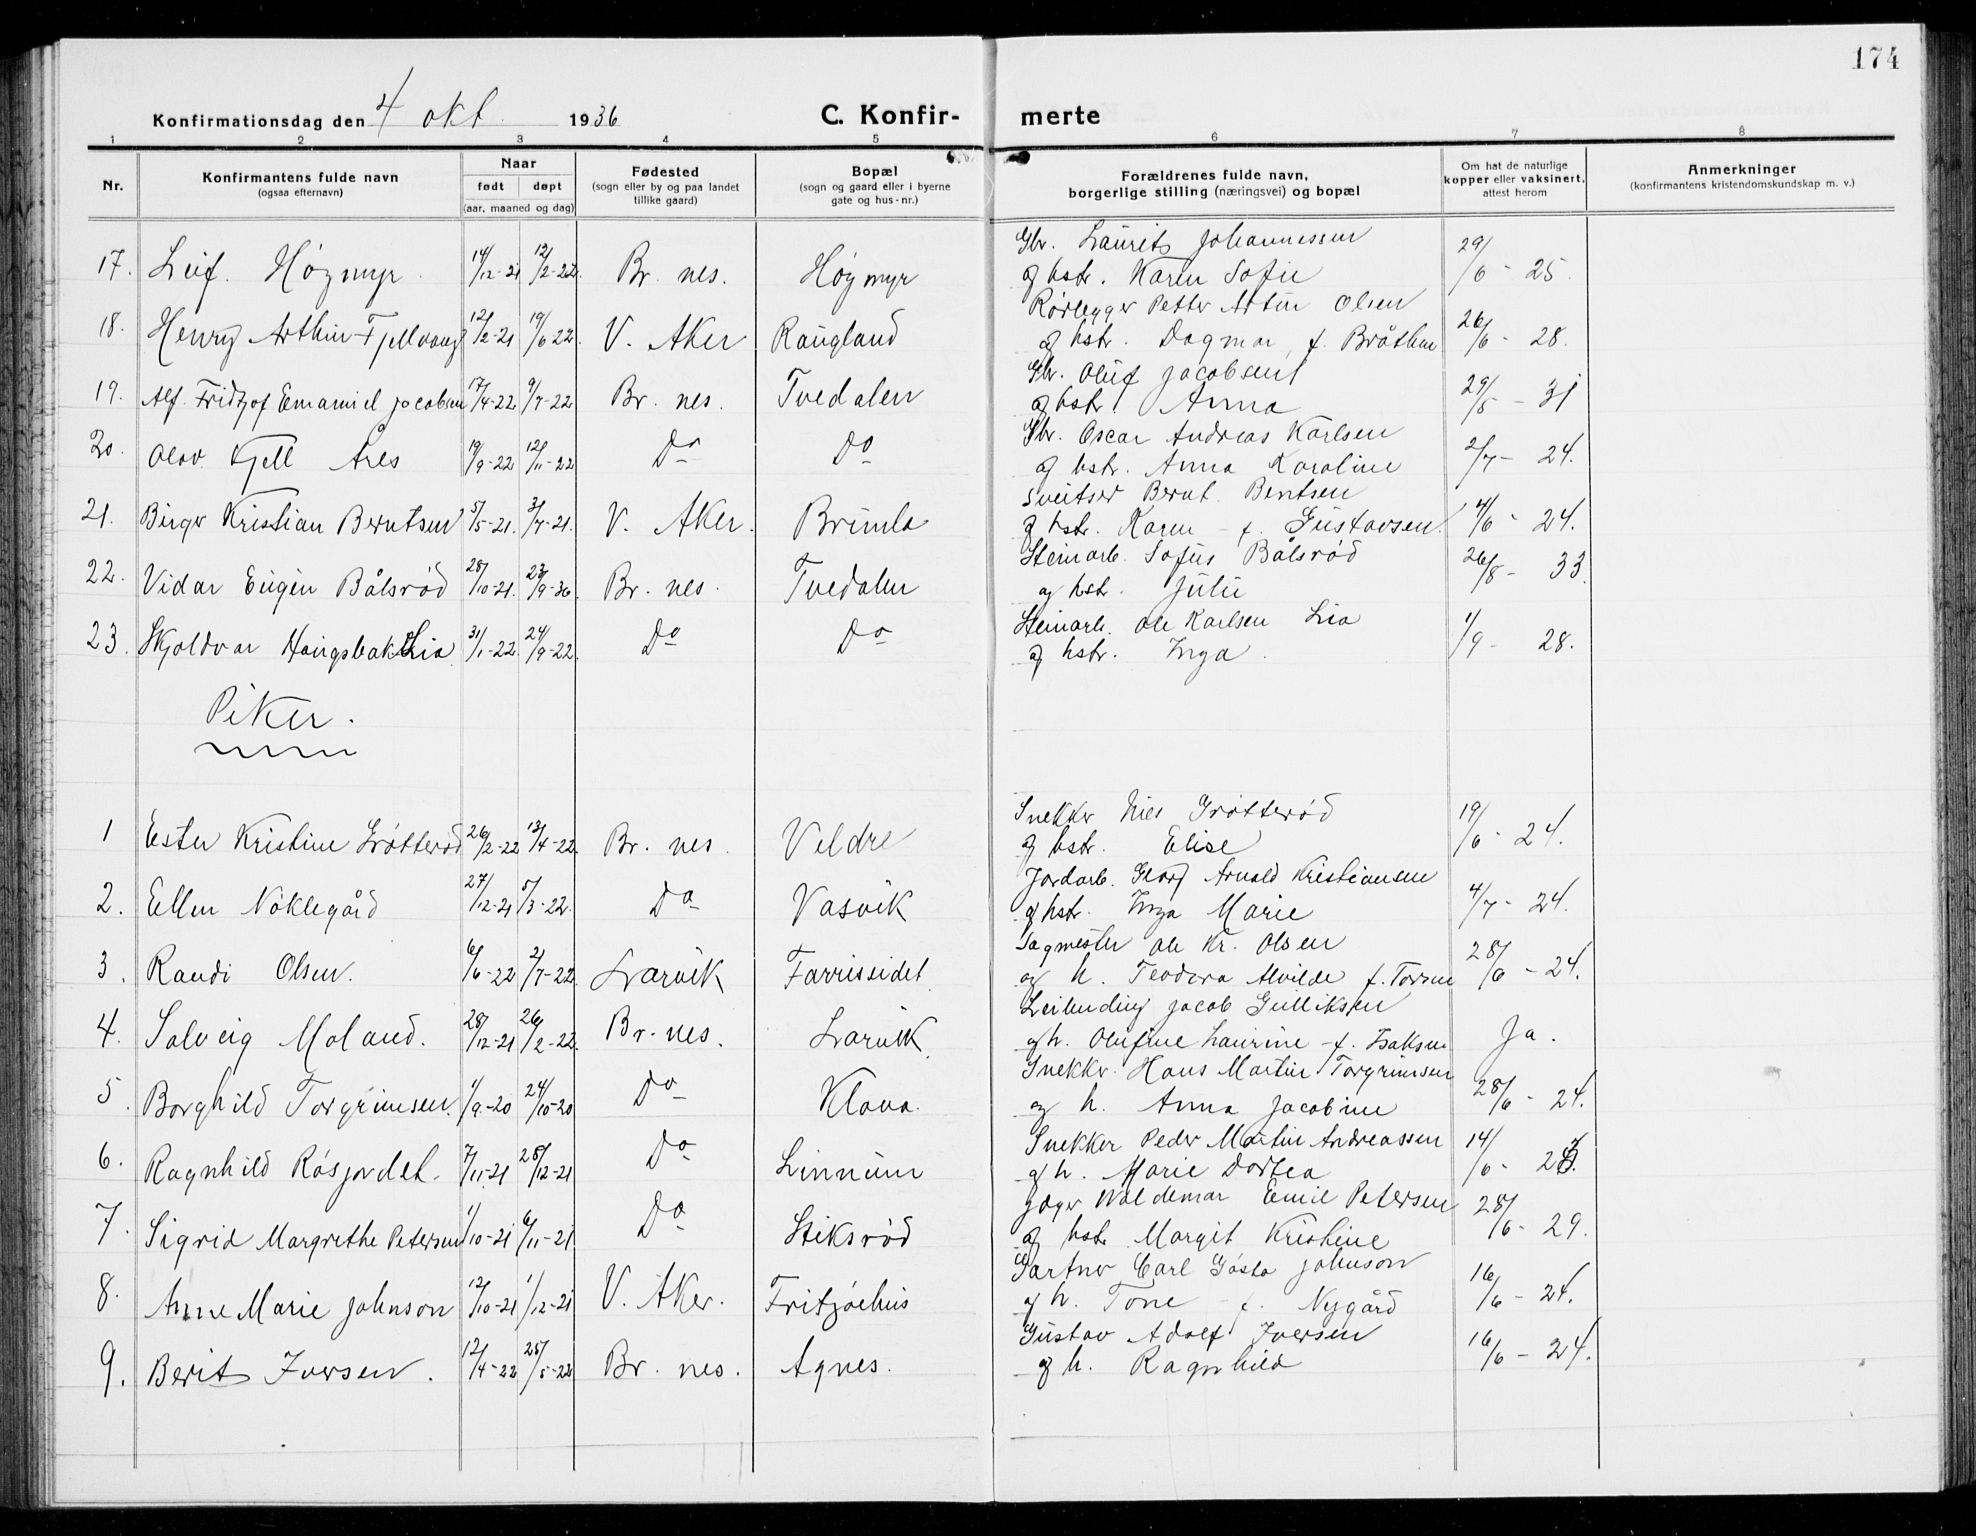 174
Konfirmationsdag den 4 okt. 1936 C. Konfir- merte
1 2 3 4 5 6 7 8
Nr. Konfirmantens fulde navn (ogsaa efternavn) Naar født døpt (aar, maaned og dag) Fødested (sogn eller by og paa landet tillike gaard) Bopæl (sogn og gaard eller i byerne gate og hus-nr.) Forældrenes fulde navn, borgerlige stilling (næringsvei) og bopæl Om hat de naturlige kopper eller vaksinert, attest herom Anmerkninger (konfirmantens kristendomskundskap m. v.)
Gbr. Laurits Johannessen
17. Leif Høgmyr 14/12-21 12/2-22. Br. nes. Høgmyr og hstr. Karen Sofie 29/6 - 25.
Rørlegger Petter Artur Olsen
18. Henry Arthur Fjellvang 12/2-21 19/6-22. V. Aker Raugland og hstr. Dagmar f. Bråthen 26/6 - 28.
Gbr. Oluf Jacobsen
19. Alf Fridtjof Emanuel Jacobsen 17/4-22 9/7-22 Br. nes. Tvedalen og hstr. Anna 29/5 - 31
Gbr. Oscar Andreas Karlsen
20. Olav Kjell Åres 19/9-22 12/11-22 Do Do og hstr. Anna Karoline 2/7 - 24.
Sveitser Bernt Bentsen
21. Birger Kristian Berntsen 5/5-21. 3/7-21. V. Aker. Brunla og hstr. Karen - f. Gustavsen 4/6 - 24.
Steinarb. Sofus Bålsrød
22. Vidar Eugen Bålsrød 28/10-21. 23/9-36. Br. nes. Tvedalen og hstr. Julie 26/8 - 33.
Steinarb. Ole Karlsen Lia
23. Skjoldvar Haugsbak Lia 31/1-22. 24/9-22. Do Do og hstr. Inga. 1/9 - 28.
Piker.
Snekker Nils Grøtterød
1 Ester Kristine Grøtterød 26/2-22 13/4-22. Br. nes. Veldre og hstr. Elise 19/6 - 24.
Jordarb. Georg Arnold Kristiansen
2. Ellen Nøklegård 27/12-21 5/3-22. Do Vasvik og hstr. Inga Marie 4/7 - 24.
Sagmester Ole Kr. Olsen
3. Randi Olsen. 6/6-22 2/7-22. Larvik Farrissidet og h. Teodora Alvilde f. Torsen 28/6 - 24.
Leilending Jacob Gulliksen
4. Solveig Moland. 28/12-21 26/2-22. Br. nes. Larvik. og h. Olufine Laurine - f. Isaksen Ja.
Snekker. Hans Martin Torgrimsen
5. Borghild Torgrimsen. 1/9-20 24/10-20 Do Klova. og h. Anna Jacobine 28/6 - 24.
Snekker Peder Martin Andreassen
6. Ragnhild Røsjordet. 7/11-21 28/12-21 Do Linnum og h. Marie Dortea 14/6 -
Jæger Waldemar Emil Petersen
7. Sigrid Margrethe Petersen 1/10-21 6/11-21 Do Stiksrød og hstr. Margit Kristine 28/6 - 29.
Gartner Carl Gøsta Johnson
8. Anne Marie Johnson 12/10-21 1/12-21 V. Aker. Fritzøehus og h. Tone - f. Nygård 16/6 - 24.
Gustav Adolf Iversen
9. Berit Iversen. 12/4-22 25/5-22 Br. nes. Agnes. og h. Ragnhild 16/6 - 24.